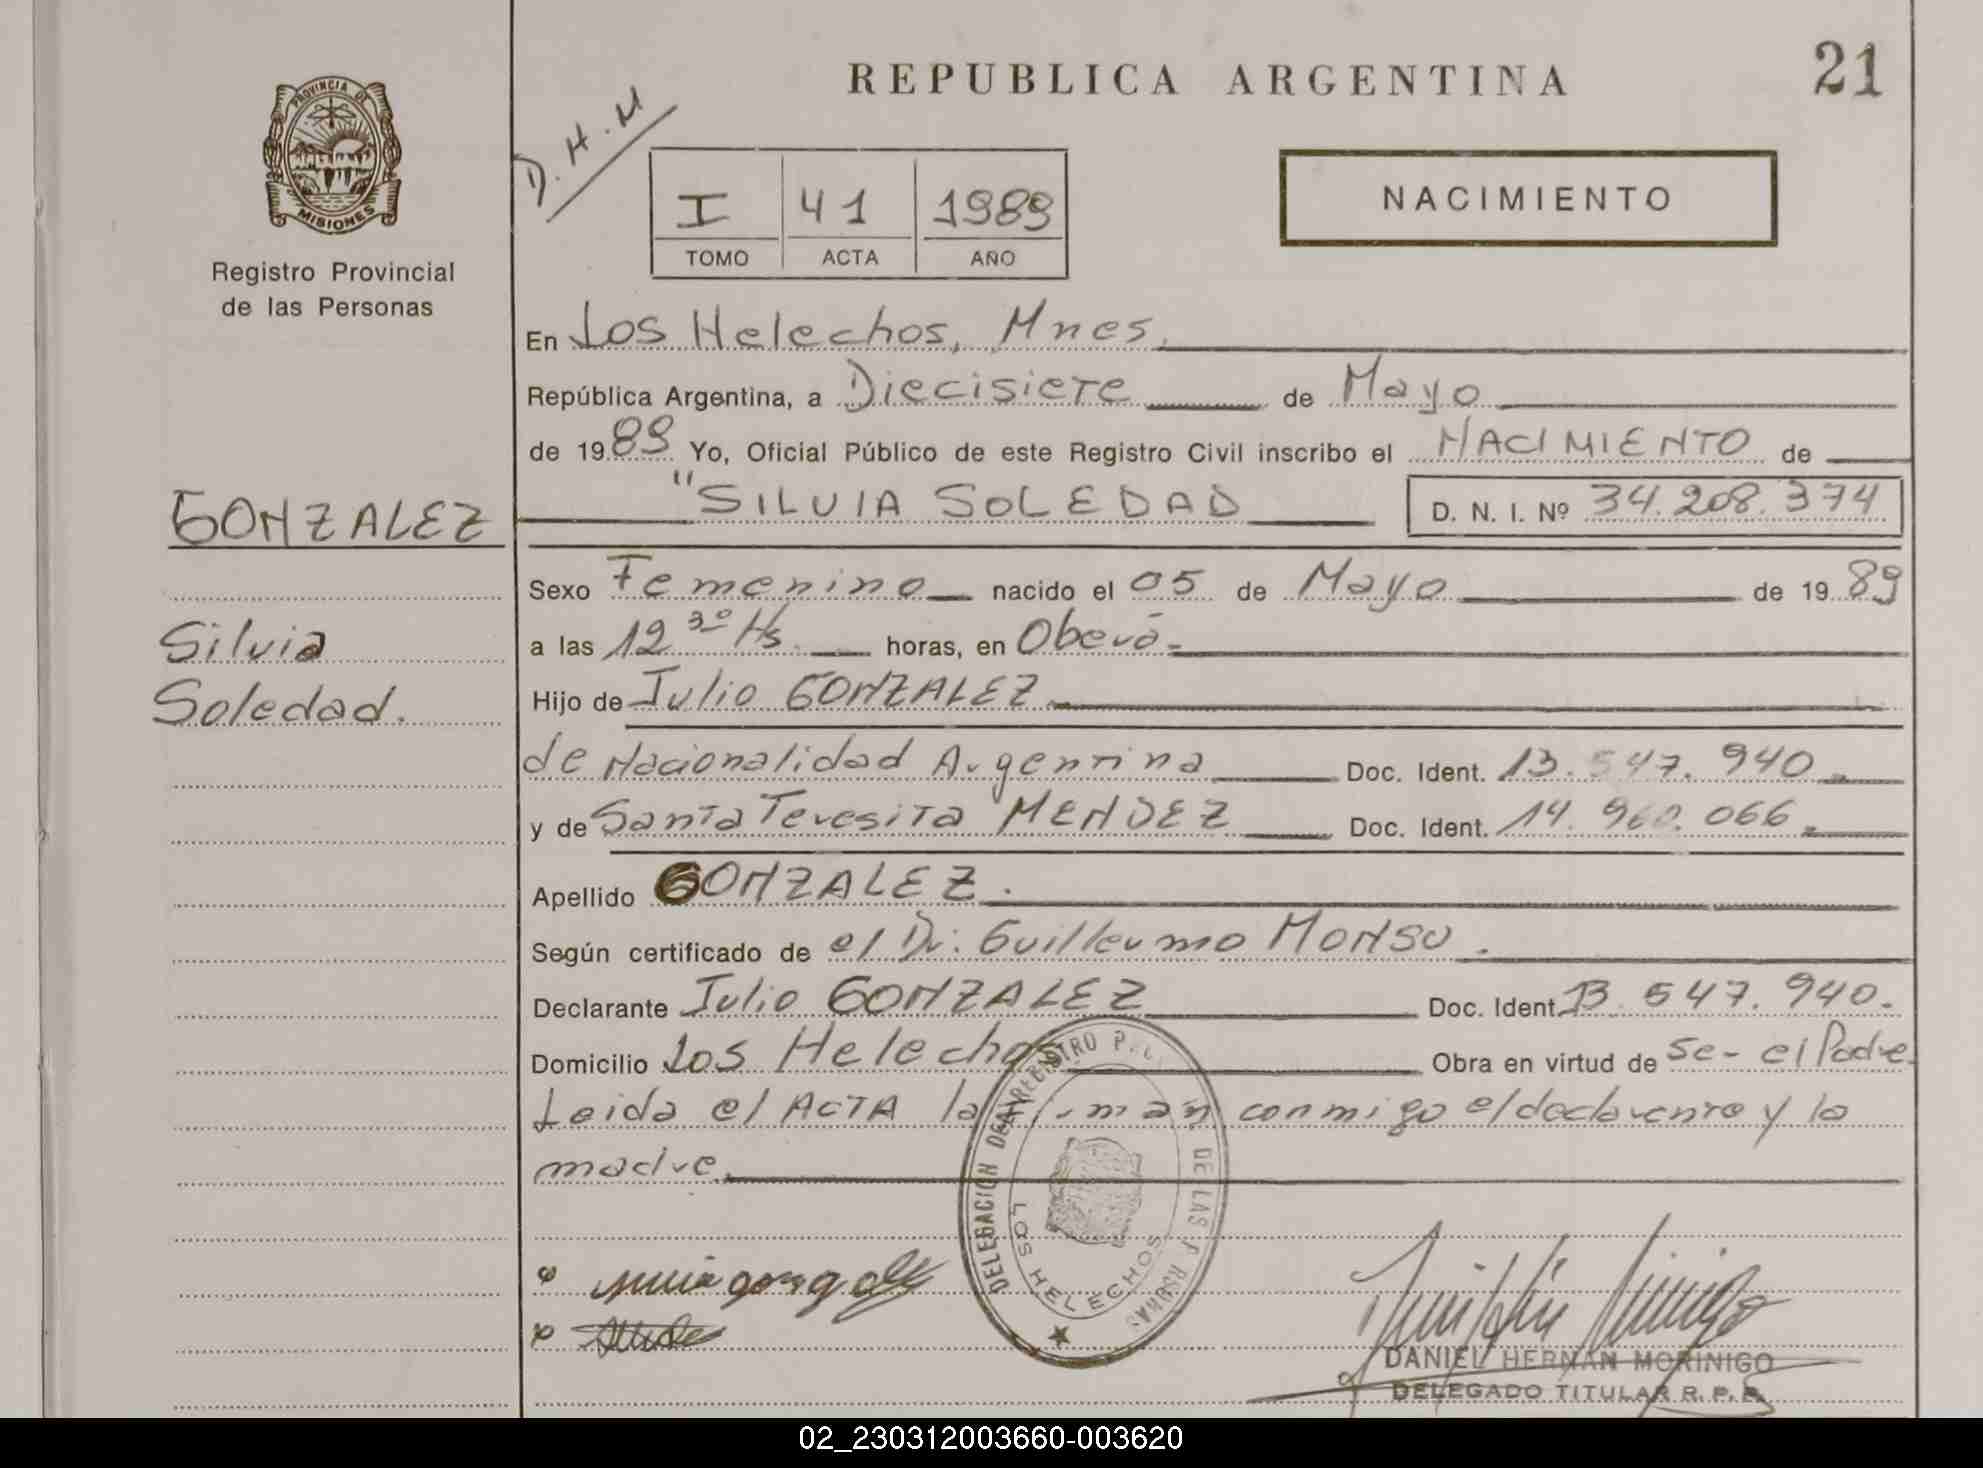 REPUBLICA ARGENTINA
21
PROVINCIA DE
MISIONES
Registro Provincial
de las Personas
D.H.M
I 41 1989
TOMO ACTA AÑO
NACIMIENTO
En Los Helechos, Mnes.
República Argentina, a Diecisiete de Mayo
de 1989 Yo, Oficial Público de este Registro Civil inscribo el NACIMIENTO de
"SILVIA SOLEDAD D. N. I. Nº 34.208.374
GONZALEZ
Sexo Femenino nacido el 05 de Mayo de 1989
Silvia
a las 12 30 Hs. horas, en Oberá
Soledad.
Hijo de Julio GONZALEZ
de Nacionalidad Argentina Doc. Ident. 13.547.940
y de Santa Teresita MENDEZ Doc. Ident. 14.960.066
Apellido GONZALEZ.
Según certificado de el Dr. Guillermo MONSU.
Declarante Julio GONZALEZ Doc. Ident. 13.547.940.
Domicilio Los Helechos Obra en virtud de Ser el Padre.
Leida el ACTA la firman conmigo el declarente y la
madre.
DELEGACION DEL REGISTRO DE LAS
LOS HELECHOS
DANIEL HERNAN MORINIGO
DELEGADO TITULAR R. P. P.
02_230312003660-003620